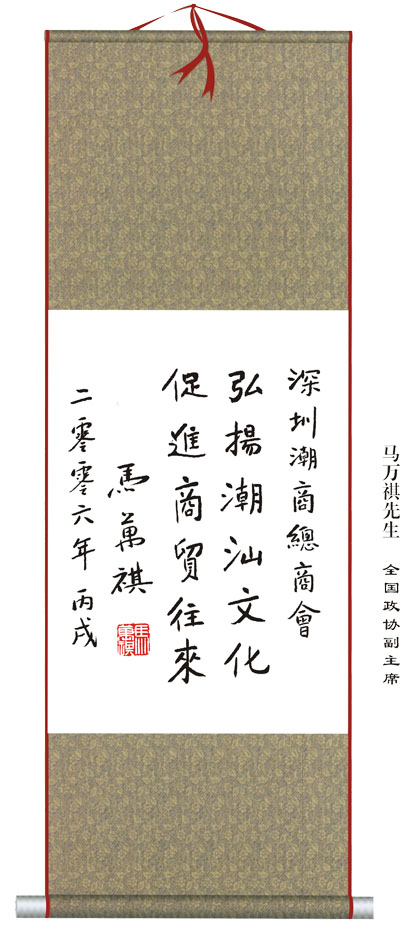 深圳潮商總商會
弘揚潮汕文化
促進商貿往來
馬萬祺
二零零六年 丙戌
馬萬祺
马万祺先生 全国政协副主席